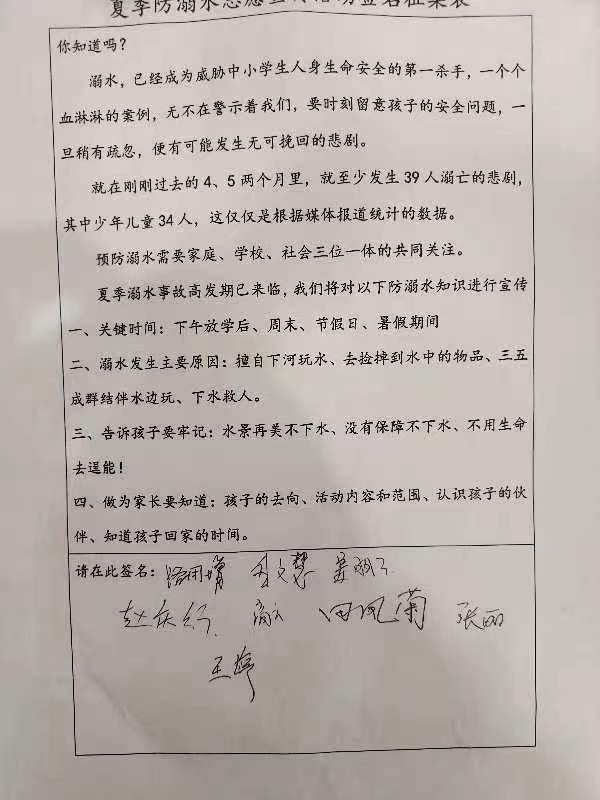 夏季防溺水志愿宣传活动签名征集表
你知道吗？
溺水，已经成为威胁中小学生人身生命安全的第一杀手，一个个
血淋淋的案例，无不在警示着我们，要时刻留意孩子的安全问题，一
旦稍有疏忽，便有可能发生无可挽回的悲剧。
就在刚刚过去的4、5两个月里，就至少发生39人溺亡的悲剧，
其中少年儿童34人，这仅仅是根据媒体报道统计的数据。
预防溺水需要家庭、学校、社会三位一体的共同关注。
夏季溺水事故高发期已来临，我们将对以下防溺水知识进行宣传
一、关键时间：下午放学后、周末、节假日、暑假期间
二、溺水发生主要原因：擅自下河玩水、去捡掉到水中的物品、三五
成群结伴水边玩、下水救人。
三、告诉孩子要牢记：水景再美不下水、没有保障不下水、不用生命
去逞能！
四、做为家长要知道：孩子的去向、活动内容和范围、认识孩子的伙
伴、知道孩子回家的时间。
请在此签名：
田凤菊 张丽